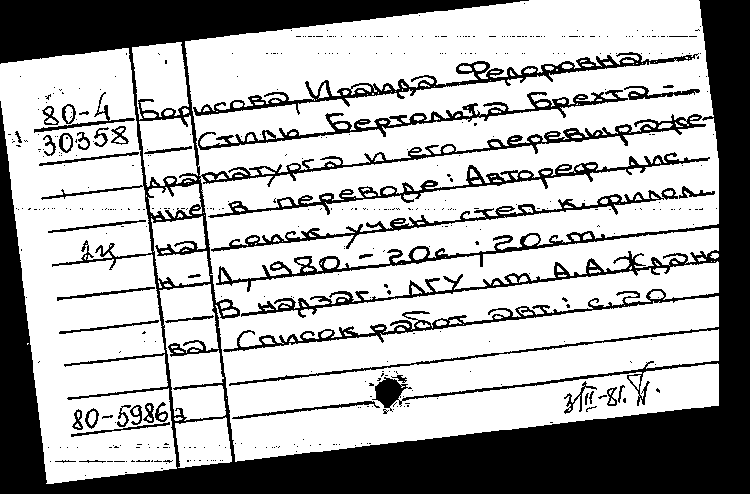 80-4
30358
Борисова, Ираида Федоровна
Стиль Бертольта Брехта -
драматурга и его перевыраже-
ние в переводе: Автореф. дис.
на соиск. учен. степ. к. филол.
н. - Л., 1980. - 20 с.; 20 см.
В надзаг.: ЛГУ им. А. А. Ждано
ва. Список работ авт.: с. 20.
2ц
80-5986а
3/II-81.